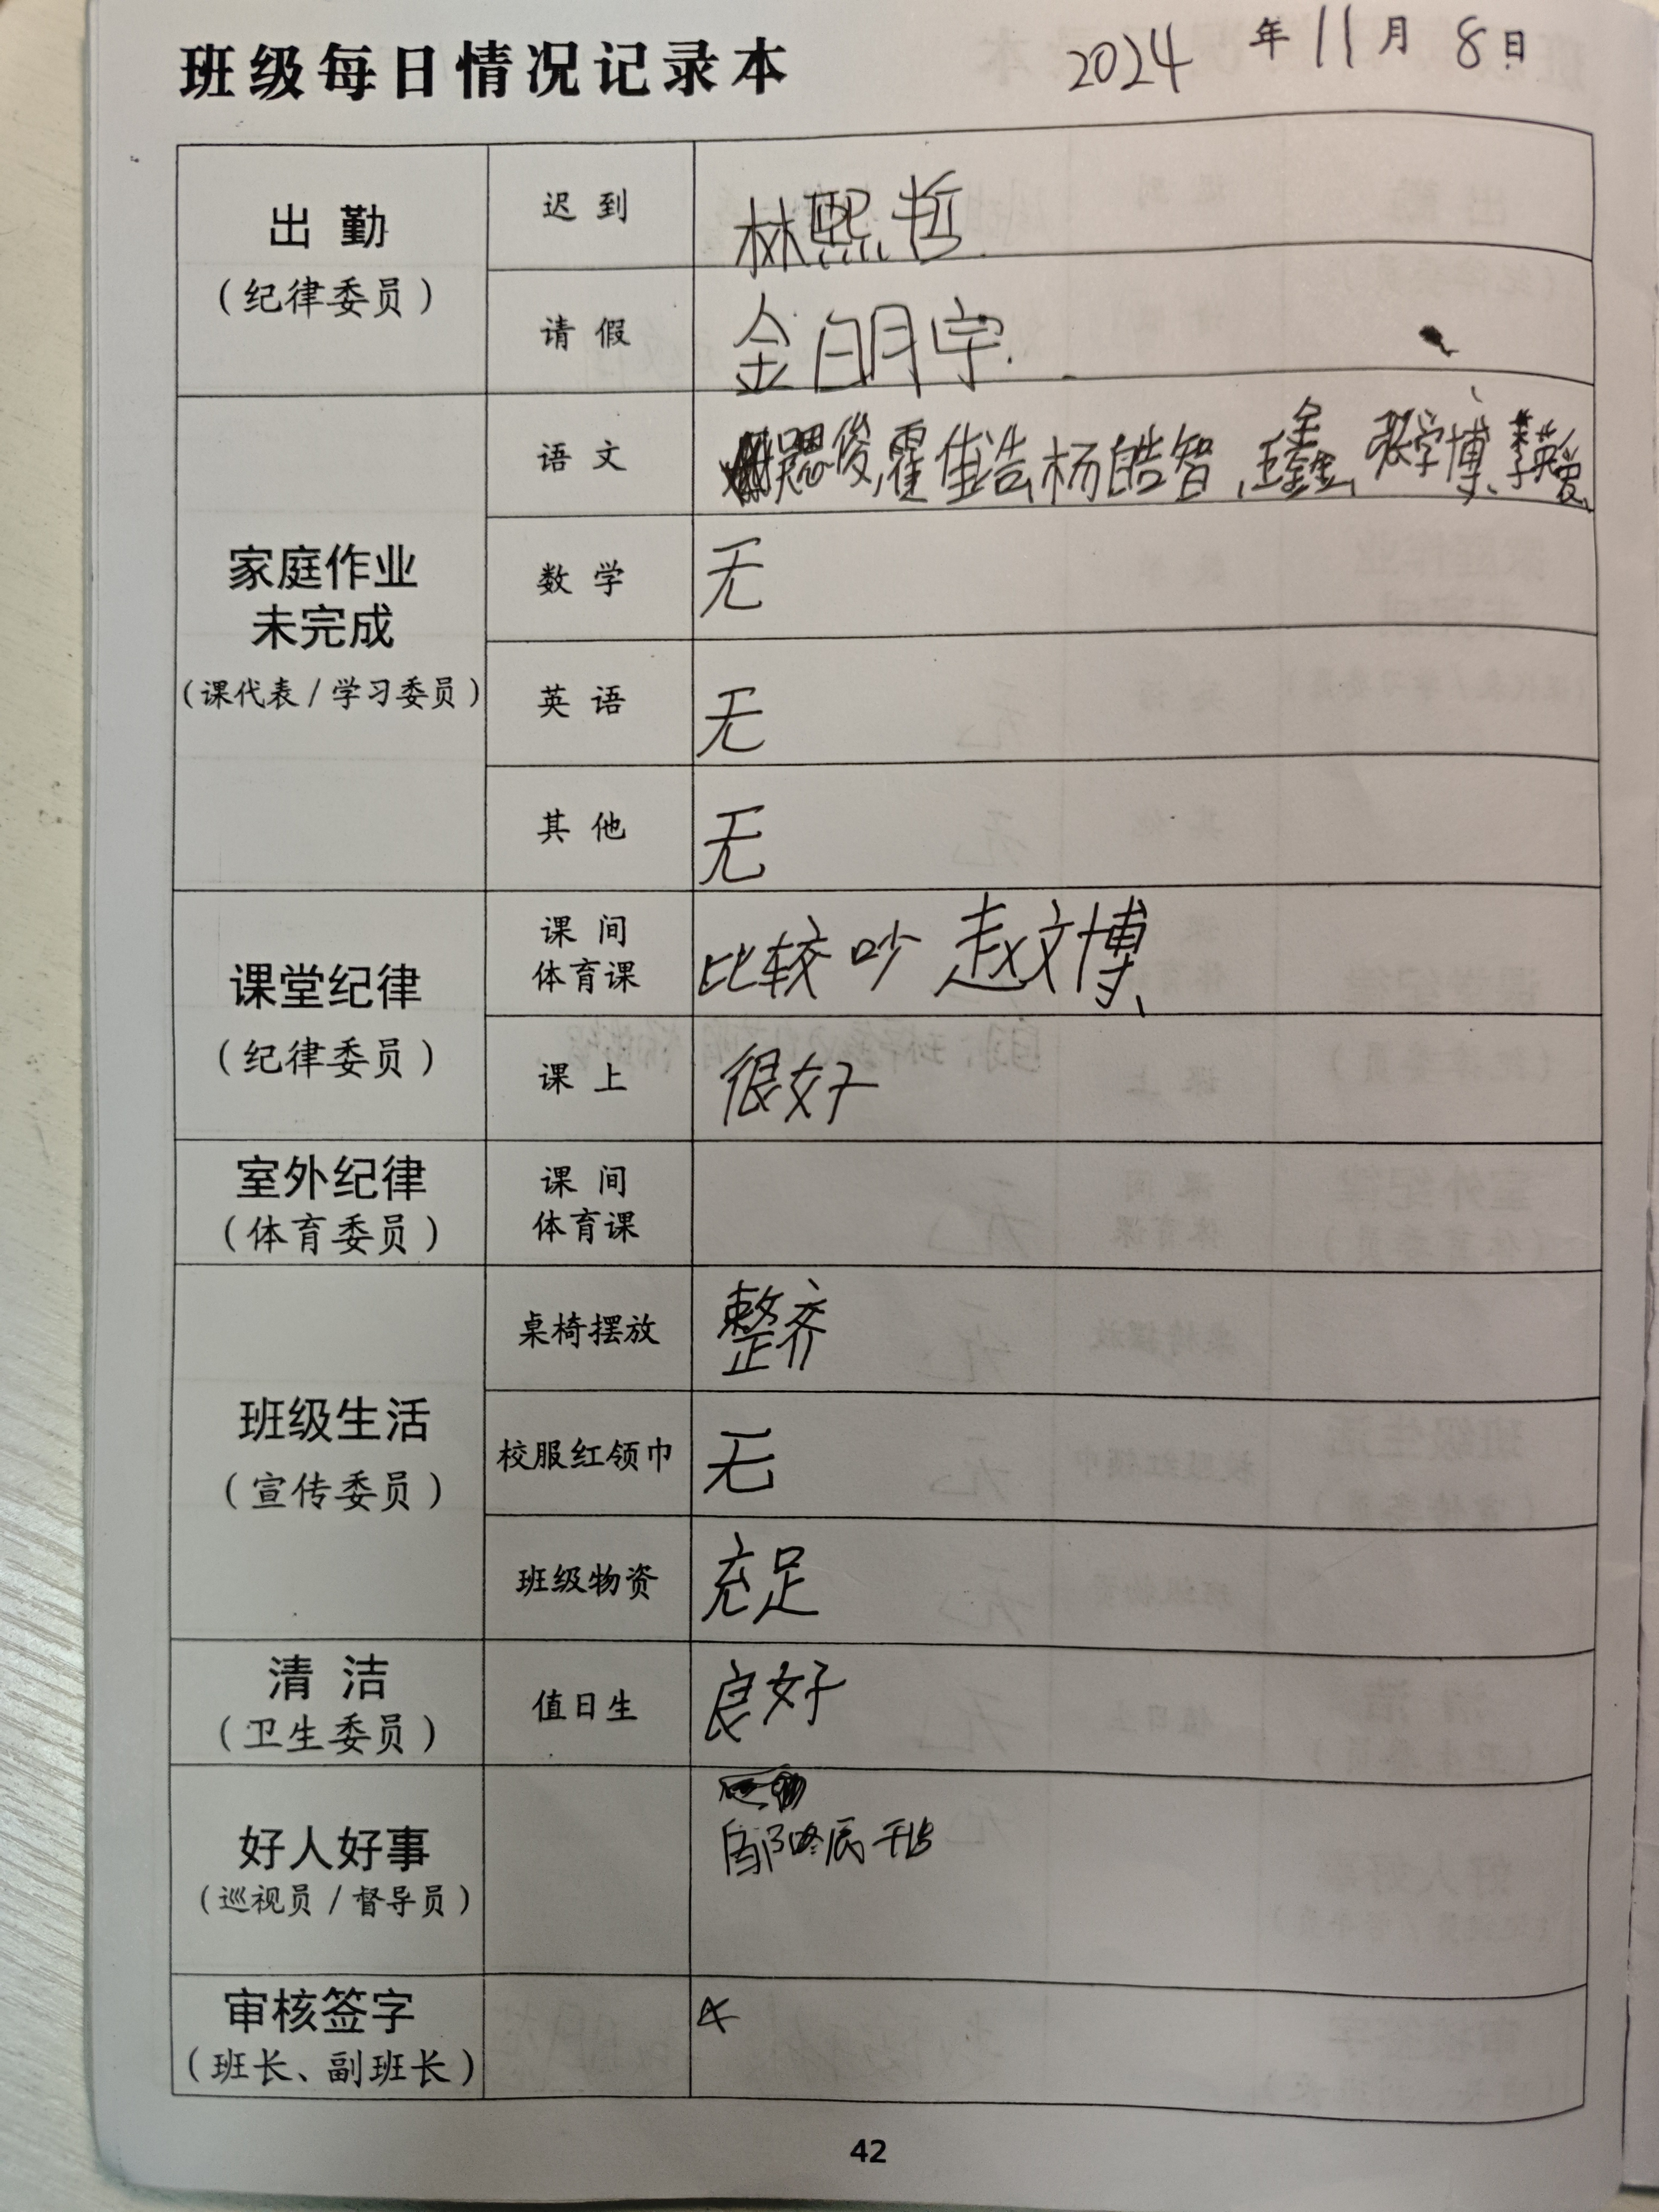 班级每日情况记录本 2024年11月8日
出勤
(纪律委员)
迟到 林熙哲
请假 金明宇
家庭作业
未完成
(课代表/学习委员)
语文 俊,霍佳浩,杨皓智,王鑫鑫,张学博、李英爱、
数学 无
英语 无
其他 无
课堂纪律
(纪律委员)
课间
体育课 比较吵 赵文博、
课上 很好
室外纪律
(体育委员)
课间
体育课
班级生活
(宣传委员)
桌椅摆放 整齐
校服红领巾 无
班级物资 充足
清洁
(卫生委员)
值日生 良好
好人好事
(巡视员/督导员)
审核签字
(班长、副班长)
42